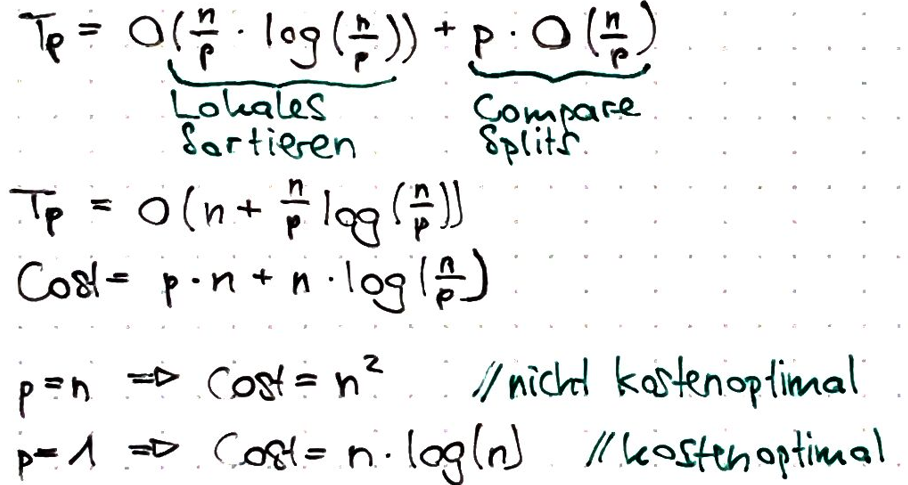 Tp = O(n/p · log(n/p)) + p · O(n/p)
Lokales Compare
Sortieren Splits
Tp = O(n + n/p log(n/p))
Cost = p·n + n·log(n/p)
p=n => Cost = n² //nicht kostenoptimal
p=1 => Cost = n·log(n) //kostenoptimal